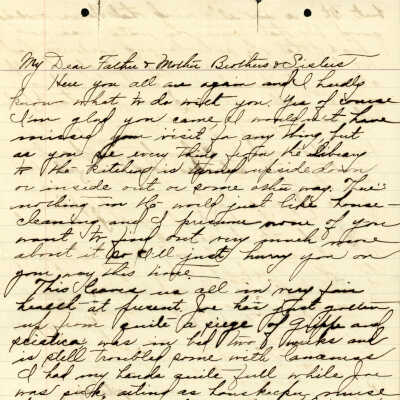 My Dear Father & Mother Brothers & Sisters
Here you all are again and I hardly
know what to do with you. Yes of course
I'm glad you came I would not have
missed your visit for any thing, but
as you see every thing from the Library
to the kitchen is turned upside down
or inside out or some other way. There's
nothing in the world just like house-
cleaning and I presume none of you
want to find out very much more
about it so I'll just hurry you on
your way this time
This leaves us all in very fair
health at present, Joe has just gotten
up from quite a siege of Grippe and
sciatica was in bed two weeks and
is still troubled some with lameness
I had my hands quite full while Joe
was sick, acting as housekeeper, nurse